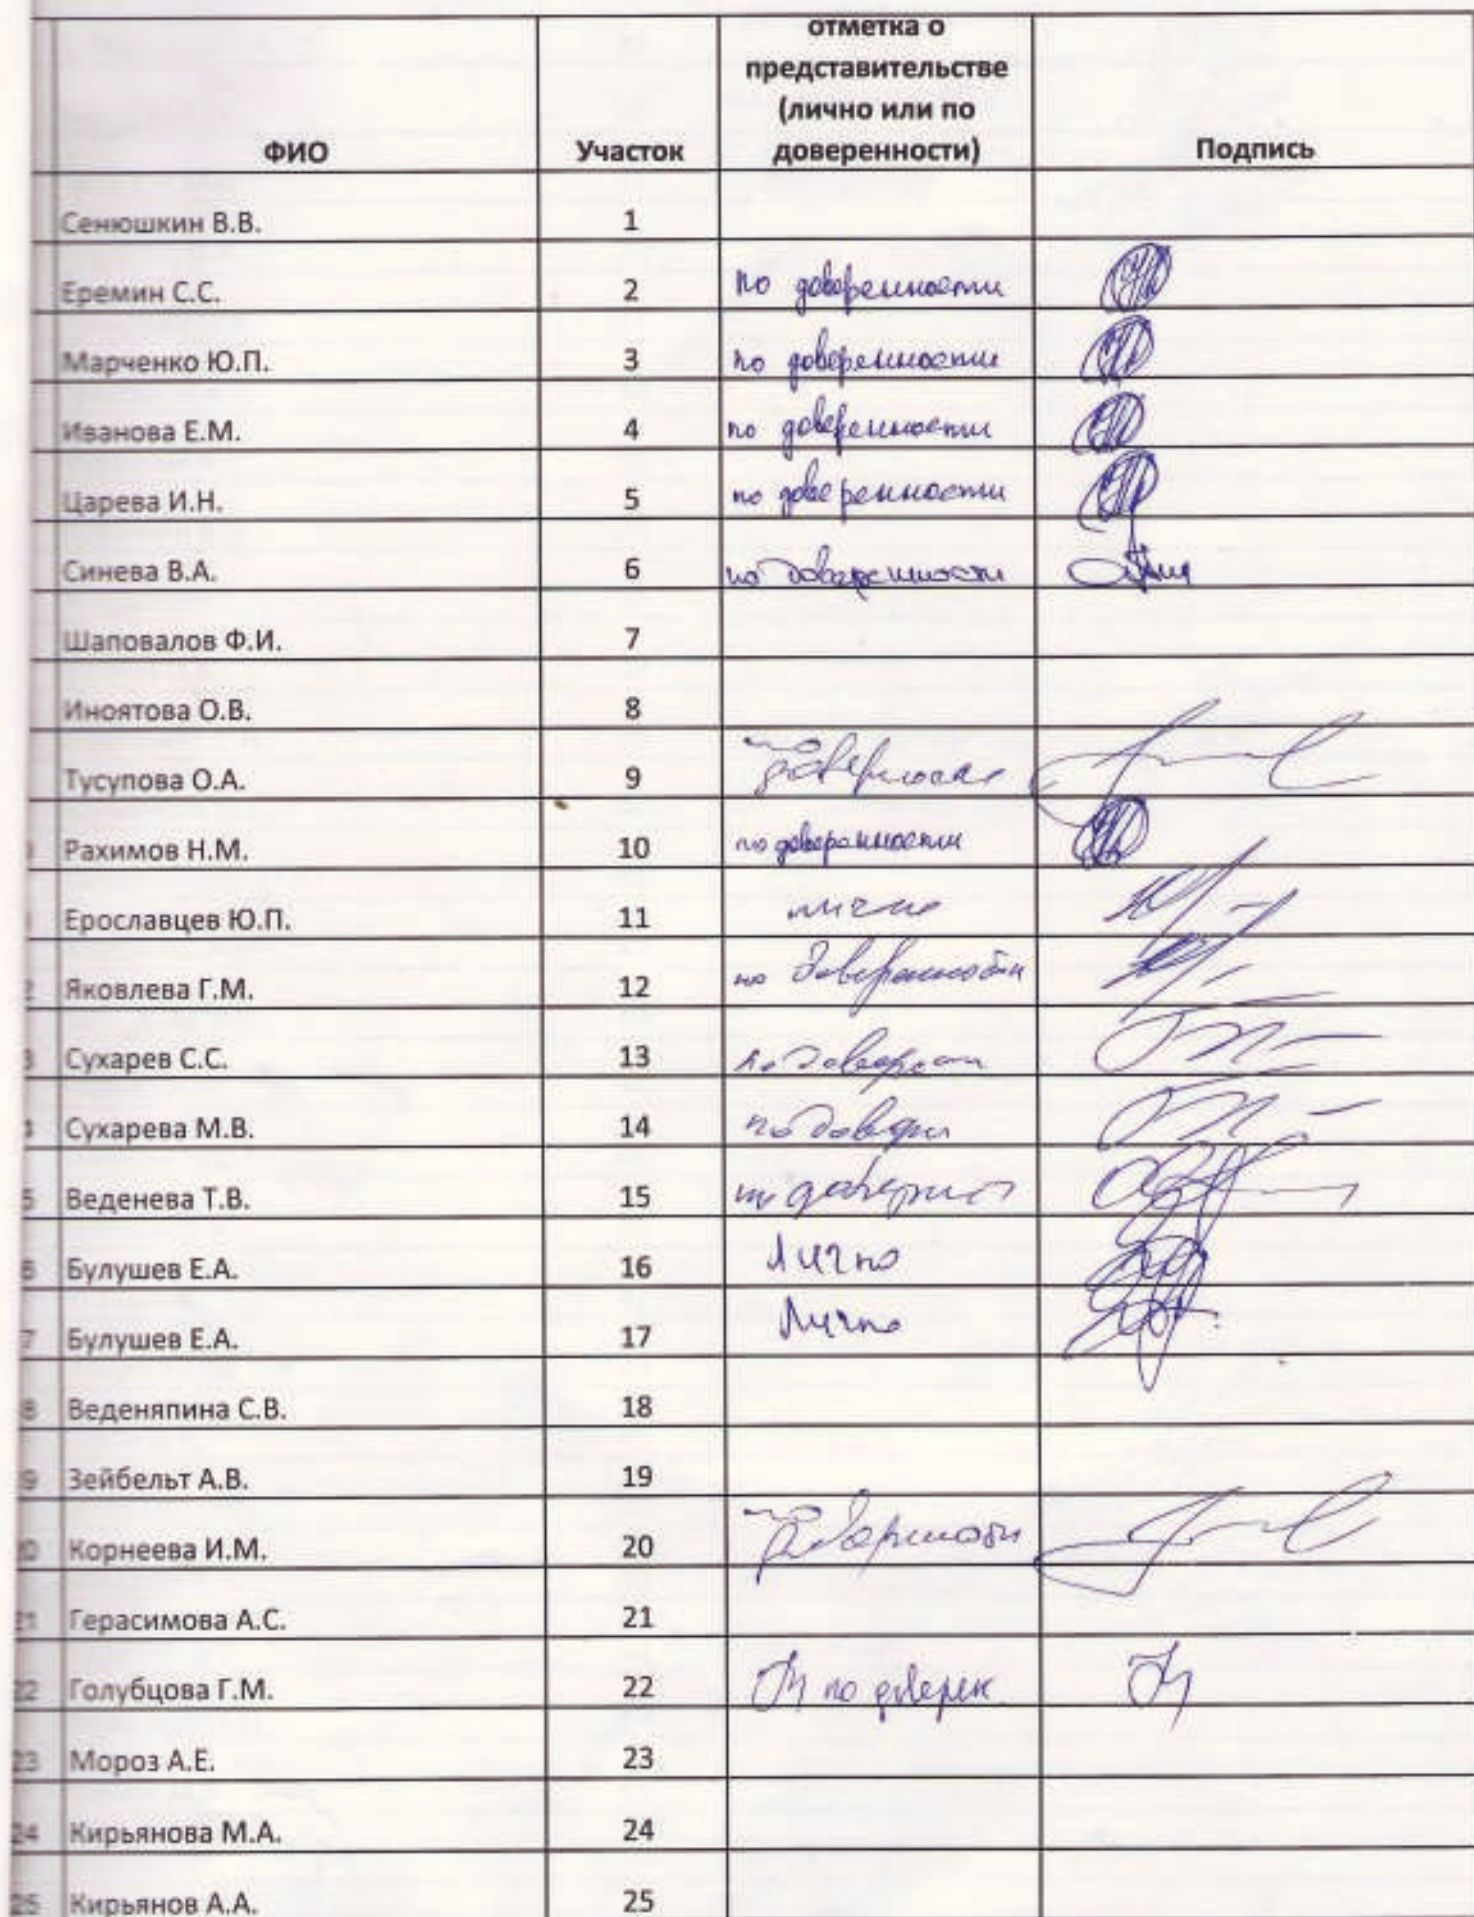 ФИО Участок отметка о представительстве (лично или по доверенности) Подпись
Сенюшкин В.В. 1
Еремин С.С. 2 по доверенности
Марченко Ю.П. 3 по доверенности
Иванова Е.М. 4 по доверенности
Царева И.Н. 5 по доверенности
Синева В.А. 6 по доверенности
Шаповалов Ф.И. 7
Иноятова О.В. 8
Тусупова О.А. 9 по
Рахимов Н.М. 10 по доверенности
Ерославцев Ю.П. 11 лично
Яковлева Г.М. 12 по доверенности
Сухарев С.С. 13 по
Сухарева М.В. 14 по
Веденева Т.В. 15 по
Булушев Е.А. 16 Лично
7 Булушев Е.А. 17 Лично
8 Веденяпина С.В. 18
9 Зейбельт А.В. 19
Корнеева И.М. 20 по
21 Герасимова А.С. 21
22 Голубцова Г.М. 22 по доверен
23 Мороз А.Е. 23
24 Кирьянова М.А. 24
25 Кирьянов А.А. 25